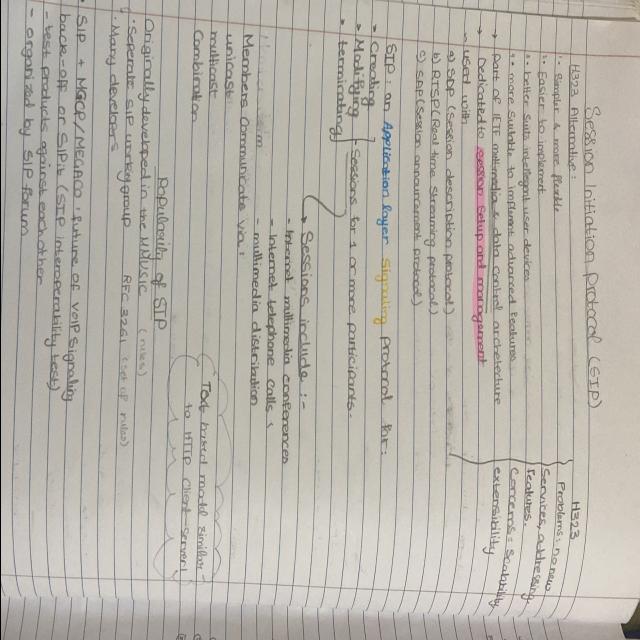 Session Initiation Protocol (SIP)
H323 Alternative:
• Simpler & more flexible
• Easier to implement
• better suits intelligent user devices
• more suitable to implement advanced features
→ Part of IETF multimedia & data control architecture
→ Dedicated to session setup and management
→ used with
a) SDP (Session description protocol)
b) RTSP (Real time Streaming protocol)
c) SAP (Session announcement protocol)
H323
Problems: no new
Services, addressing,
features.
Concerns: scalability
extensibility
SIP: an Application layer Signaling protocol for:
• Creating
• Modifying
• terminating
Sessions for 1 or more participants.
→ Sessions include :-
- Internet multimedia conferences
- Internet telephone calls
- multimedia distribution
Members Communicate via:
unicast
multicast
Combination
Text based model similar
to HTTP client-server!
Popularity of SIP
Originally developed in the MMUSIC (rules)
• Seperate SIP working group RFC 3261 (set of rules)
• Many developers
• SIP + MGCP/MEGACO - future of VOIP signaling
back-off or SIPit (SIP Interoperability test)
- test products against each other
- organized by SIP forum